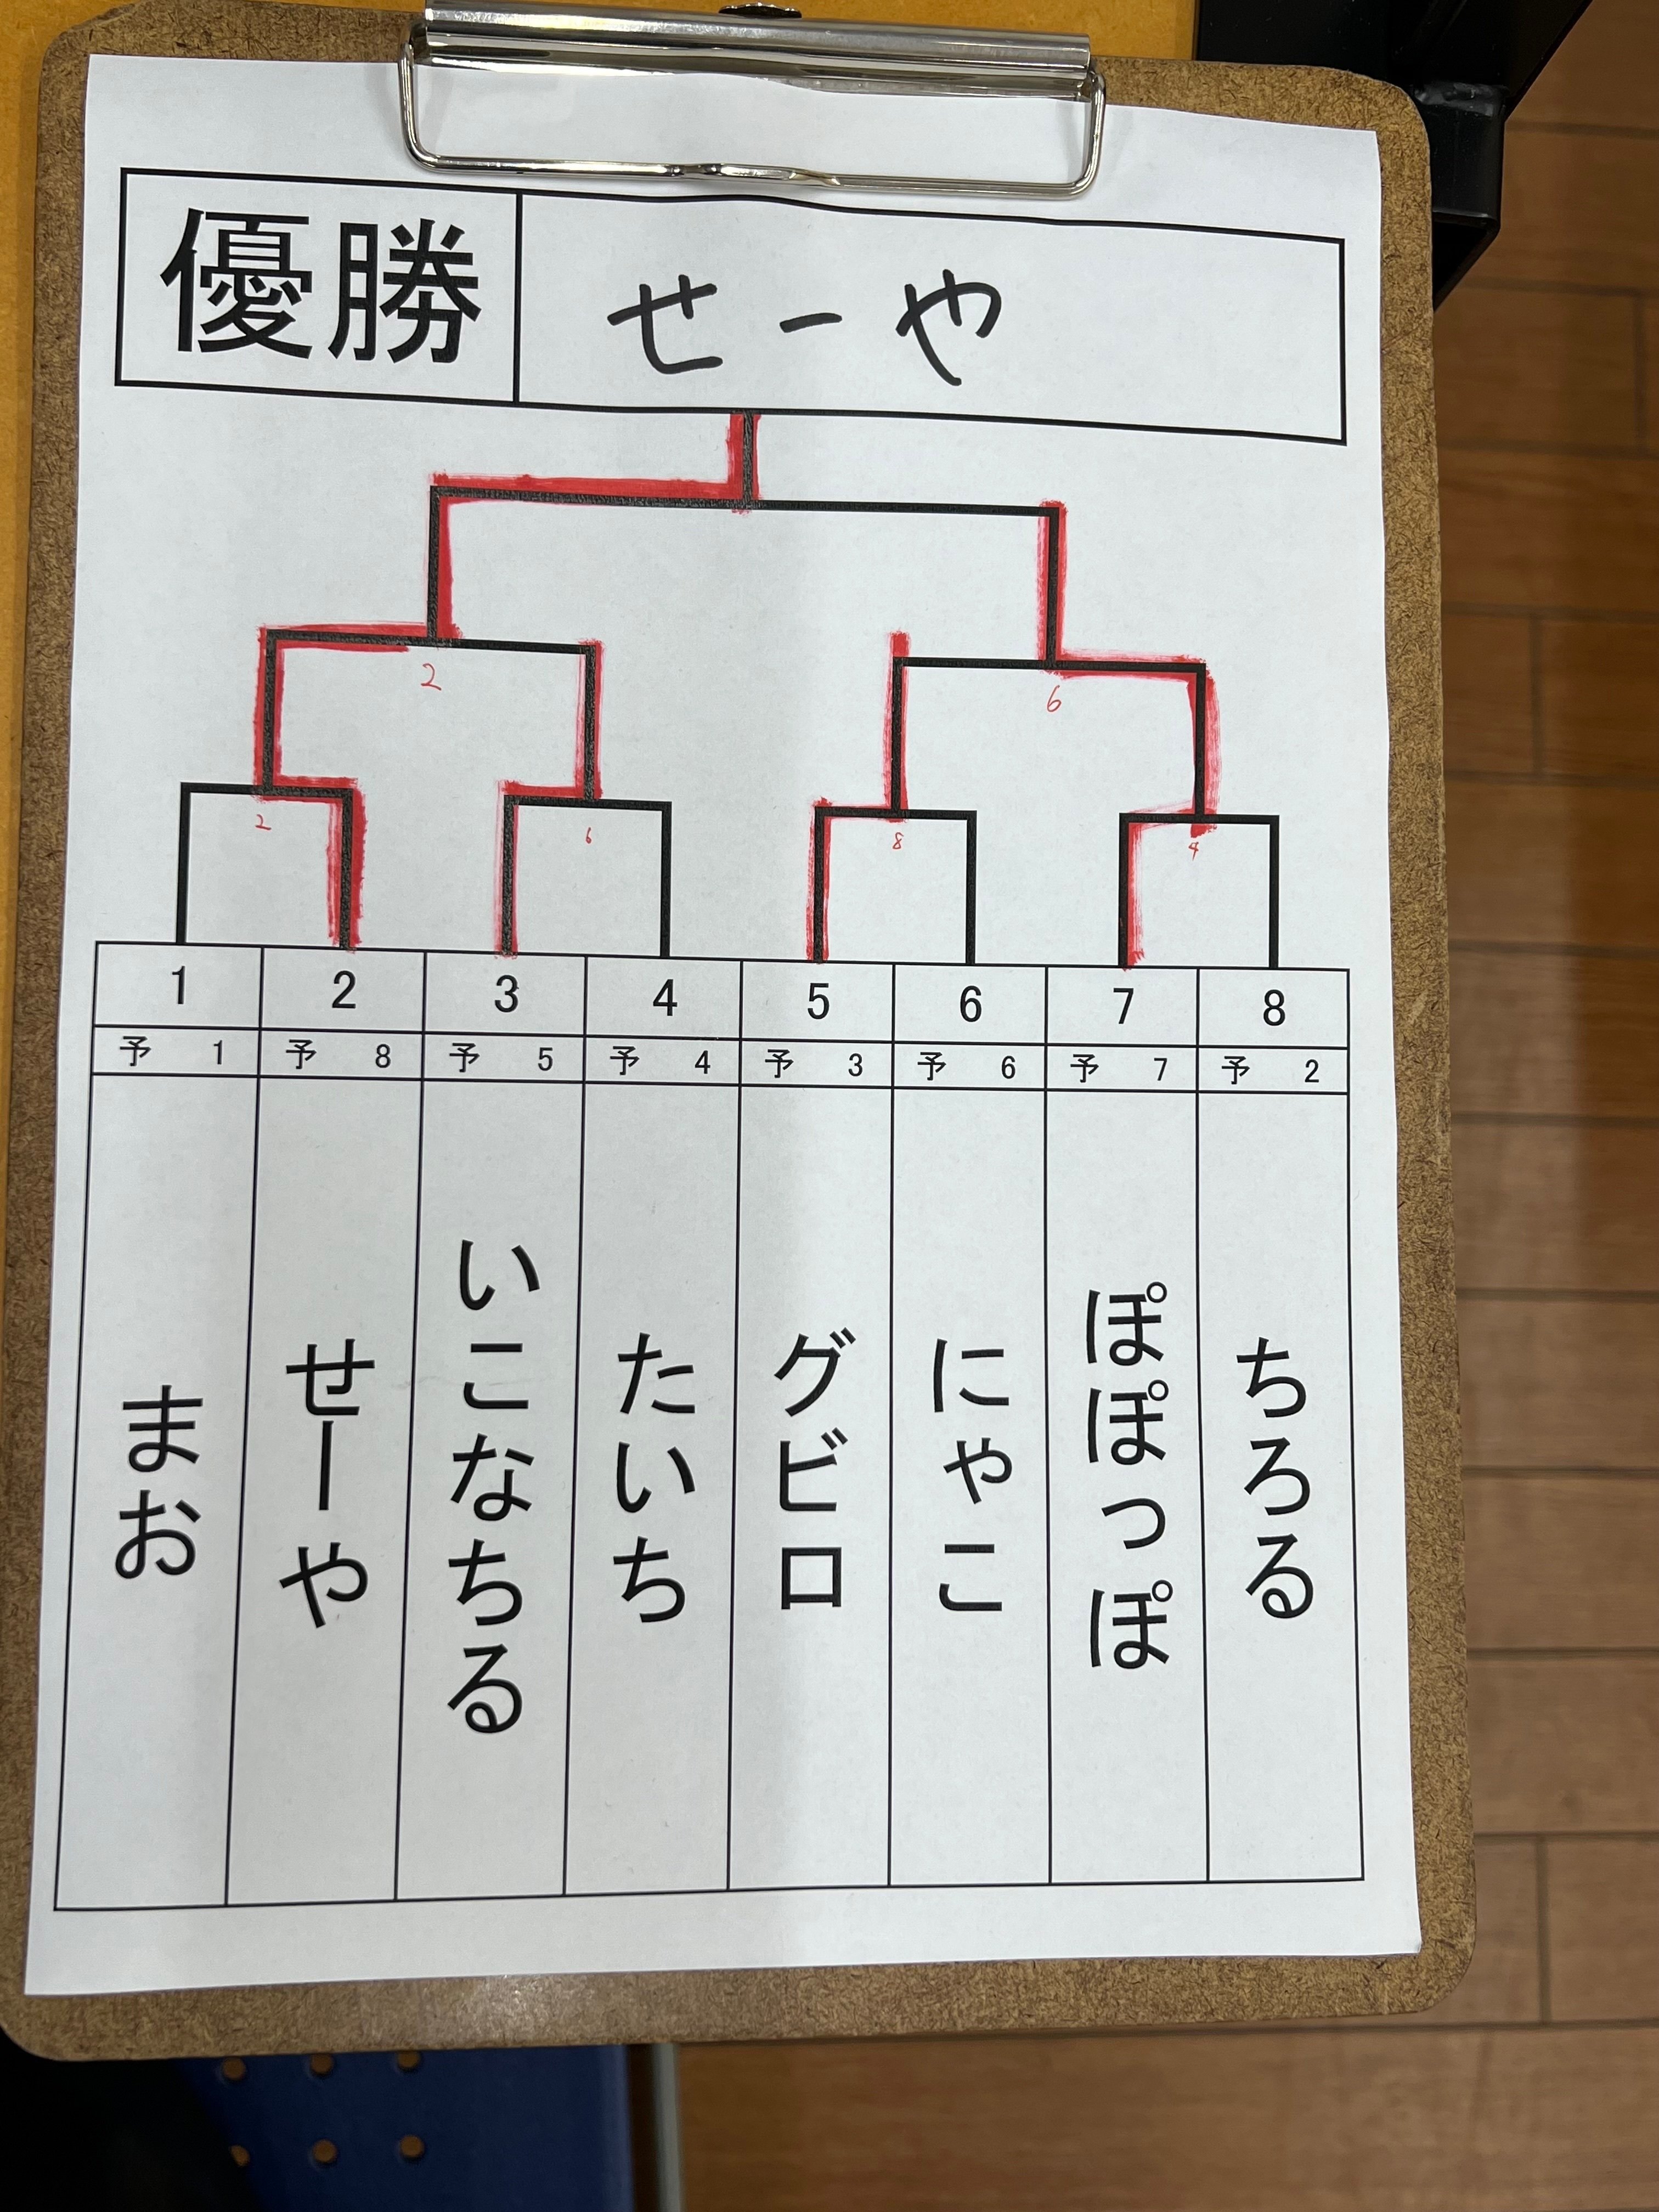 優勝 せーや
2 6
2 6 8 4
1 2 3 4 5 6 7 8
予 1 予 8 予 5 予 4 予 3 予 6 予 7 予 2
まお
せーや
いこなちる
たいち
グビロ
にゃこ
ぽぽっぽ
ちろる